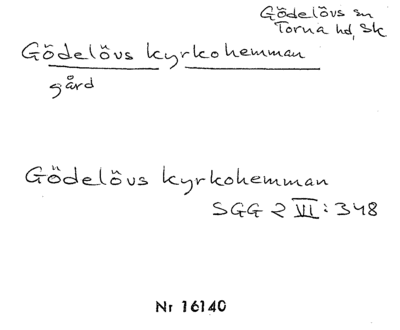 Gödelövs sn
Torna hd, Sk
Gödelövs kyrkohemman
gård
Gödelövs kyrkohemman
SGG 2 VI: 348
Nr 16140